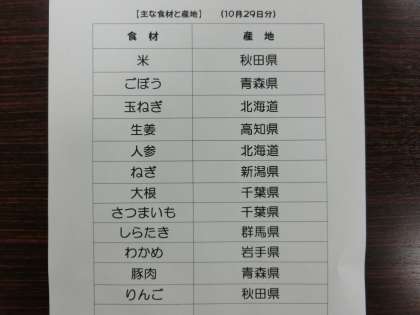 【主な食材と産地】 (10月29日分)
食材 産地
米 秋田県
ごぼう 青森県
玉ねぎ 北海道
生姜 高知県
人参 北海道
ねぎ 新潟県
大根 千葉県
さつまいも 千葉県
しらたき 群馬県
わかめ 岩手県
豚肉 青森県
りんご 秋田県